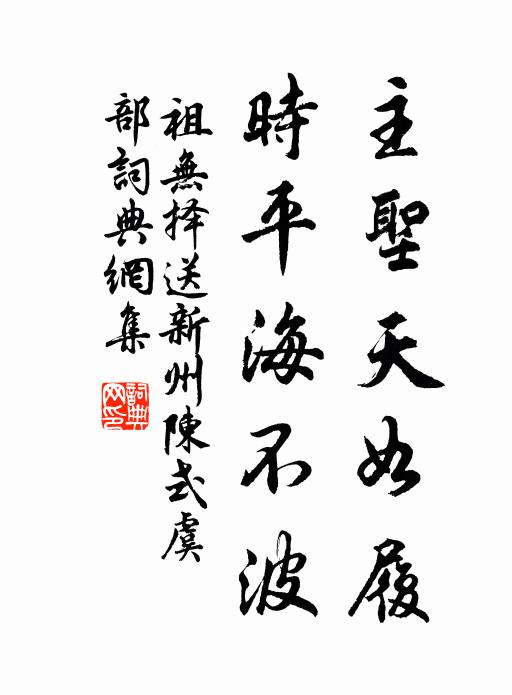 主聖天如履
時平海不波
祖無择送新州陳式虞
部詞典網集
詞典
网印